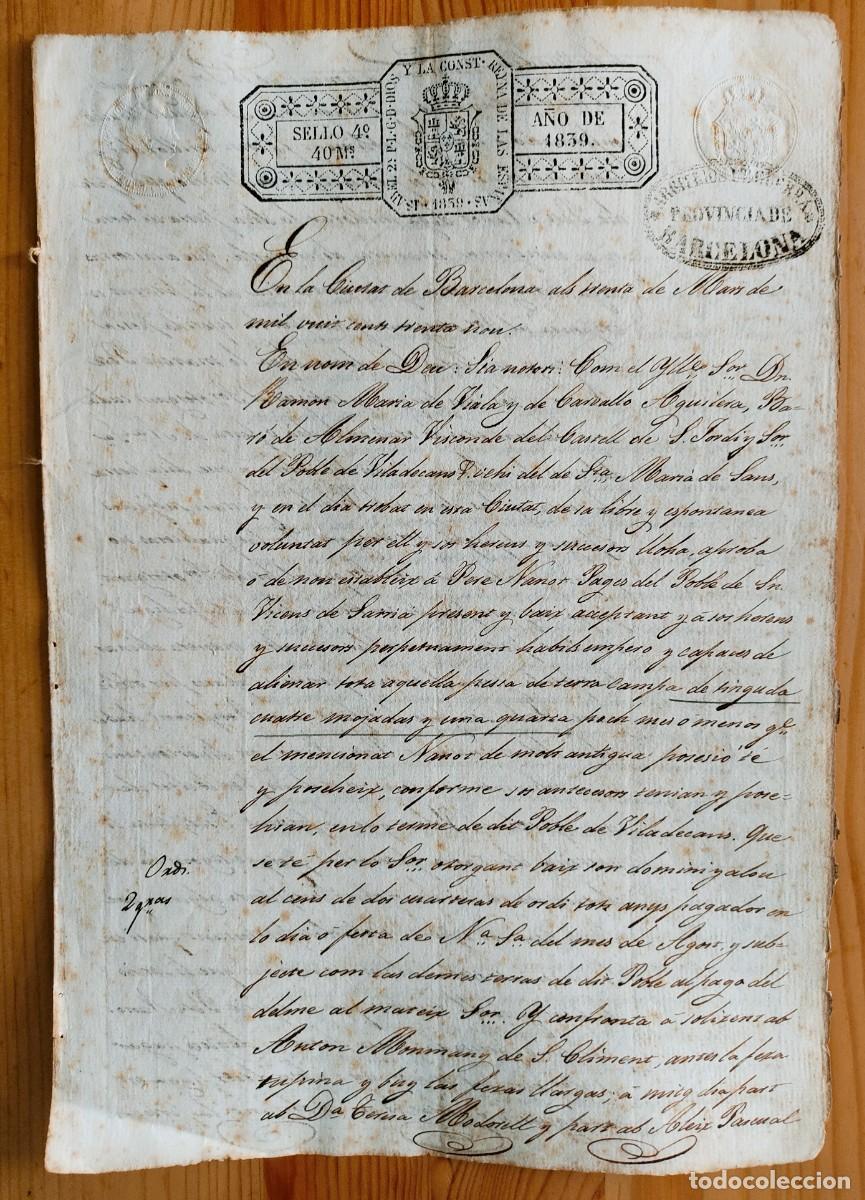 ISABEL 2ª P. L. G. D. DIOS Y LA CONST. REYNA DE LAS ESPAÑAS
SELLO 4º
40 Ms
AÑO DE
1839.
1839
PROVINCIA DE
BARCELONA
En la Ciutat de Barcelona als trenta de Mars de
mil vuit cents trenta nou.
En nom de Deu: Sia notori: Com el Ylle Sor Dn
Ramon Maria de Viala y de Carvallo Aguilera, Ba-
ró de Almenar Visconde del Castell de S. Jordi y Sor
del Poble de Viladecans vehi del de Sta Maria de Sans,
y en el dia trobat en esta Ciutat, de sa libre y espontanea
voluntat per ell y sos hereus y succesors lloha, aproba
ó de nou estableix á Pere Nanot Pages del Poble de Sn
Vicens de Sarriá present y baix acceptant y á sos hereus
y succesors perpetuament habils empero y capaces de
alienar tota aquella pessa de terra campa de tinguda
cuatre mojadas y una quarta poch mes o menos qe
el mencionat Nanot de molt antigua posesió té
y posseheix, conforme sos antecesors tenian y pose-
hian, en lo terme de dit Poble de Viladecans. Que
se té per lo Sor otorgant baix son domini y alou
al cens de dos cuarteras de ordi tots anys pagador en
lo dia ó festa de Na Sa del mes de Agost, y sub-
jecte com las demes terras de dit Poble al pago del
delme al mateix Sor. Y confronta á solixent ab
Anton Monmany de S. Climent, antes la fexa
rupina y buy las fexas llargas; á mitg dia part
ab Da Teresa Modolell y part ab Aleix Pascual
Ordi.
2 qras
todocoleccion